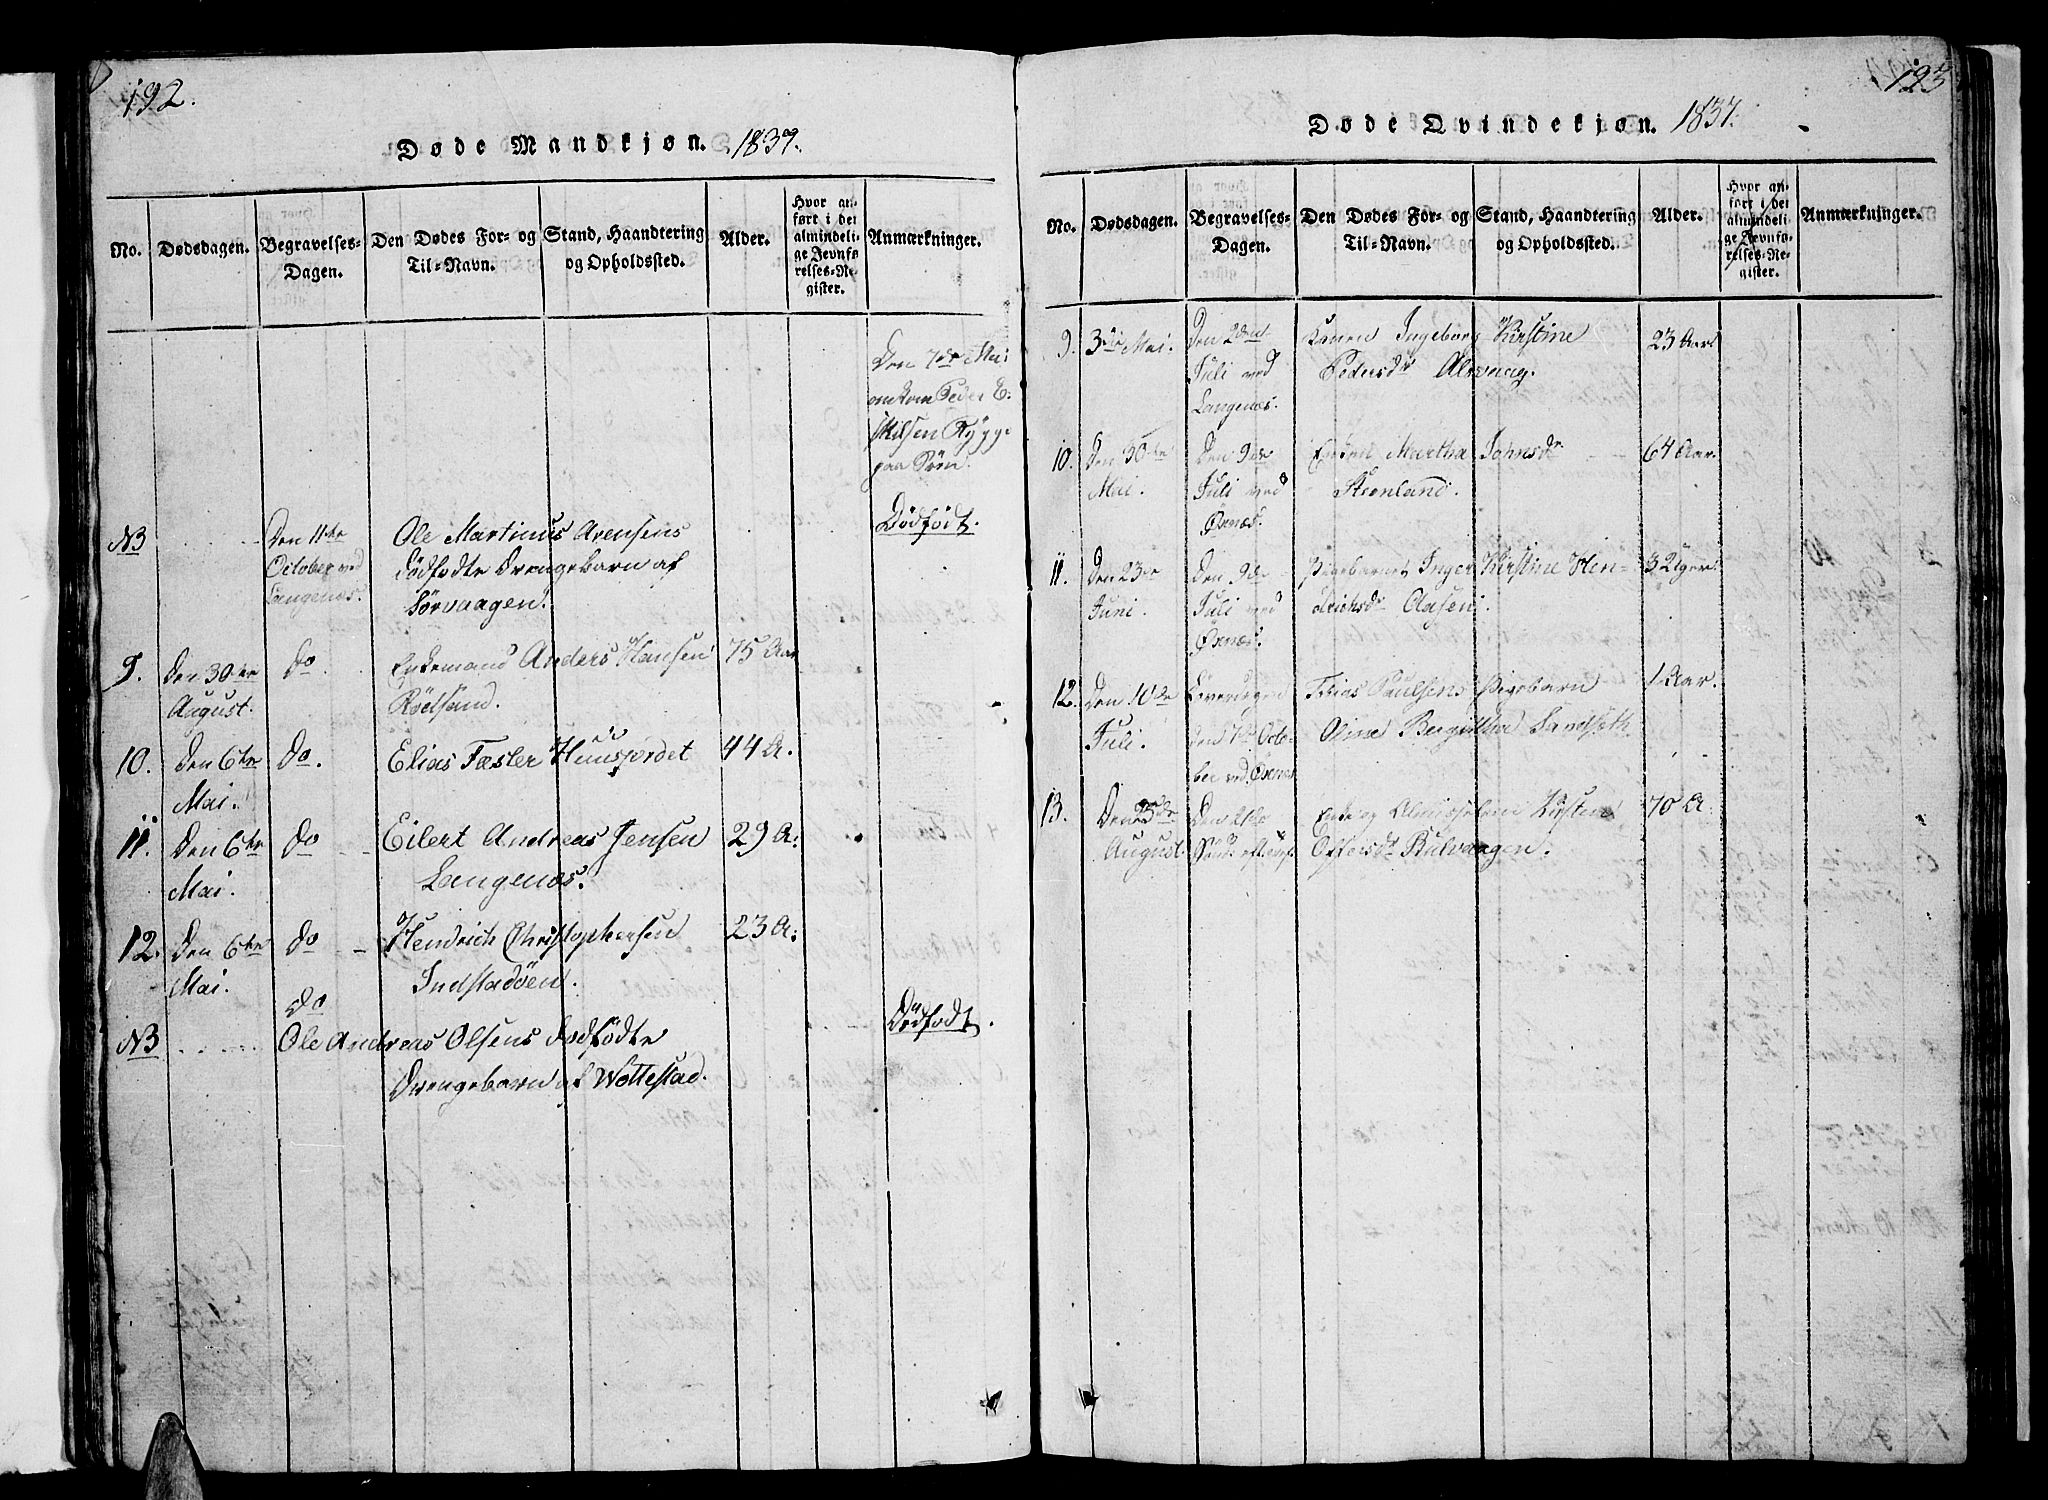 192.
Døde Mandkjøn. 1839.
No. Dødsdagen. Begravelses-Dagen. Den Dødes For- og Til-Navn. Stand, Haandtering og Opholdssted. Alder. Hvor anført i det almindelige Jevnførelses-Register. Anmærkninger.
Den 7de Mai
omkom Peder E-
skilsen Rygge
paa Søen.
NB Den 11te Ole Martinus Arensens Dödfödt.
October ved dödfödte Drengebarn af
Langenæs. Sörvaagen.
9. Den 30te do Enkemand Anders Hansen 75 Aar
August. Rödsand.
10. Den 6te do. Elias Fæster Huusfordet 44 A.
Mai.
11. Den 6te do Eilert Andreas Jensen 29 A:
Mai. Langenæs.
12. Den 6te do Hendrich Christophersen 23 A:
Mai. Indstadöen.
do
NB Ole Andreas Olsens dödfödte Dödfödt.
Drengebarn af Wottestad.
193
Døde Qvindekjøn. 1837.
No. Dødsdagen. Begravelses-Dagen. Den Dødes For- og Til-Navn. Stand, Haandtering og Opholdssted. Alder. Hvor anført i det almindelige Jevnførelses-Register. Anmærkninger.
9. 3die Mai. Den 2den Konen Ingeborg Kirstine 23 Aar
Juli ved Pedersdr Alsvaag.
Langenæs.
10. Den 30te Den 9de Enken Martha Johnsdr 64 Aar.
Mai. Juli ved Steenland.
Öxnæs.
11. Den 23de Den 9de Pigebarnet Inger Kirstine Hen- 3 Uger
Juni. Juli ved drichsdr Olasen.
Öxnæs.
12. Den 10de Tobias Paulsens Pigebarn 1 Aar.
Juli. den 7de Octo- Oline Bergitha Sandseth
ber ved Öxnæs
13. Den Den 21de Enke og Almisselem Kirsten 70 A.
August. Offersdr Bulvaagen.